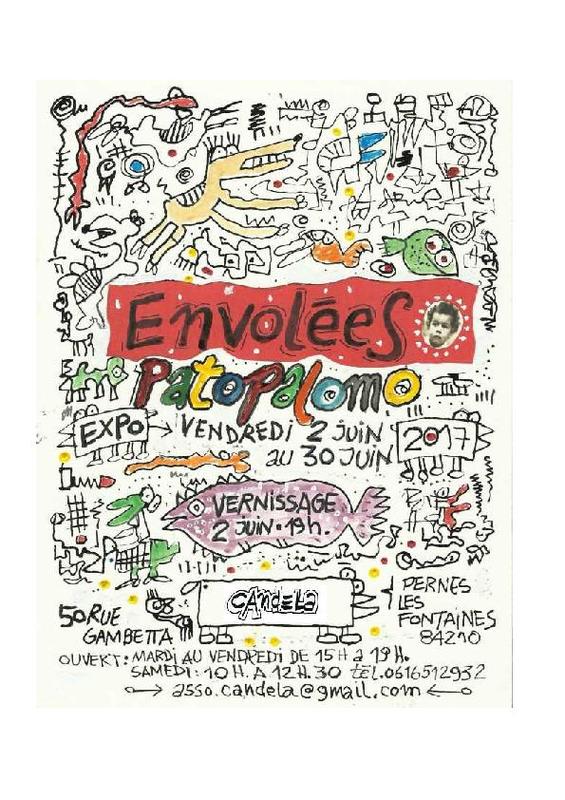 Envolées
Patopalomo
EXPO → VENDREDI 2 JUIN 2017
au 30 JUIN
VERNISSAGE
2 JUIN • 19h.
CANDELA
50 RUE
GAMBETTA
PERNES
LES
FONTAINES
84210
OUVERT: MARDI AU VENDREDI DE 15H à 19H.
SAMEDI: 10H. A 12H.30 tél.0616512932
asso.candela@gmail.com